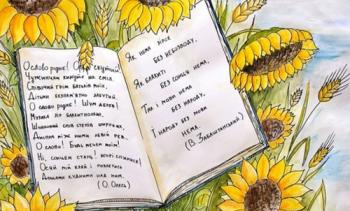 О слово рідне! Орле скутий!
Чужинцям кинуте на сміх
Співочий грім батьків моїх,
Дітьми безпам'ятно забутий.
О слово рідне! Шум дерев!
Музика
Шумний
Дніпра між ними левій рев...
О слово! Будь мечем моїм!
Ні, сонцем стань!
Осяй мій край і розлетись
Дощами судними над ним.
(О. Олесь)
Як нема
без небозводу,
Як блакиті
без сонця нема,
Так і мови нема
без народу,
І народу без мови
нема.
(В. Забаштанський)